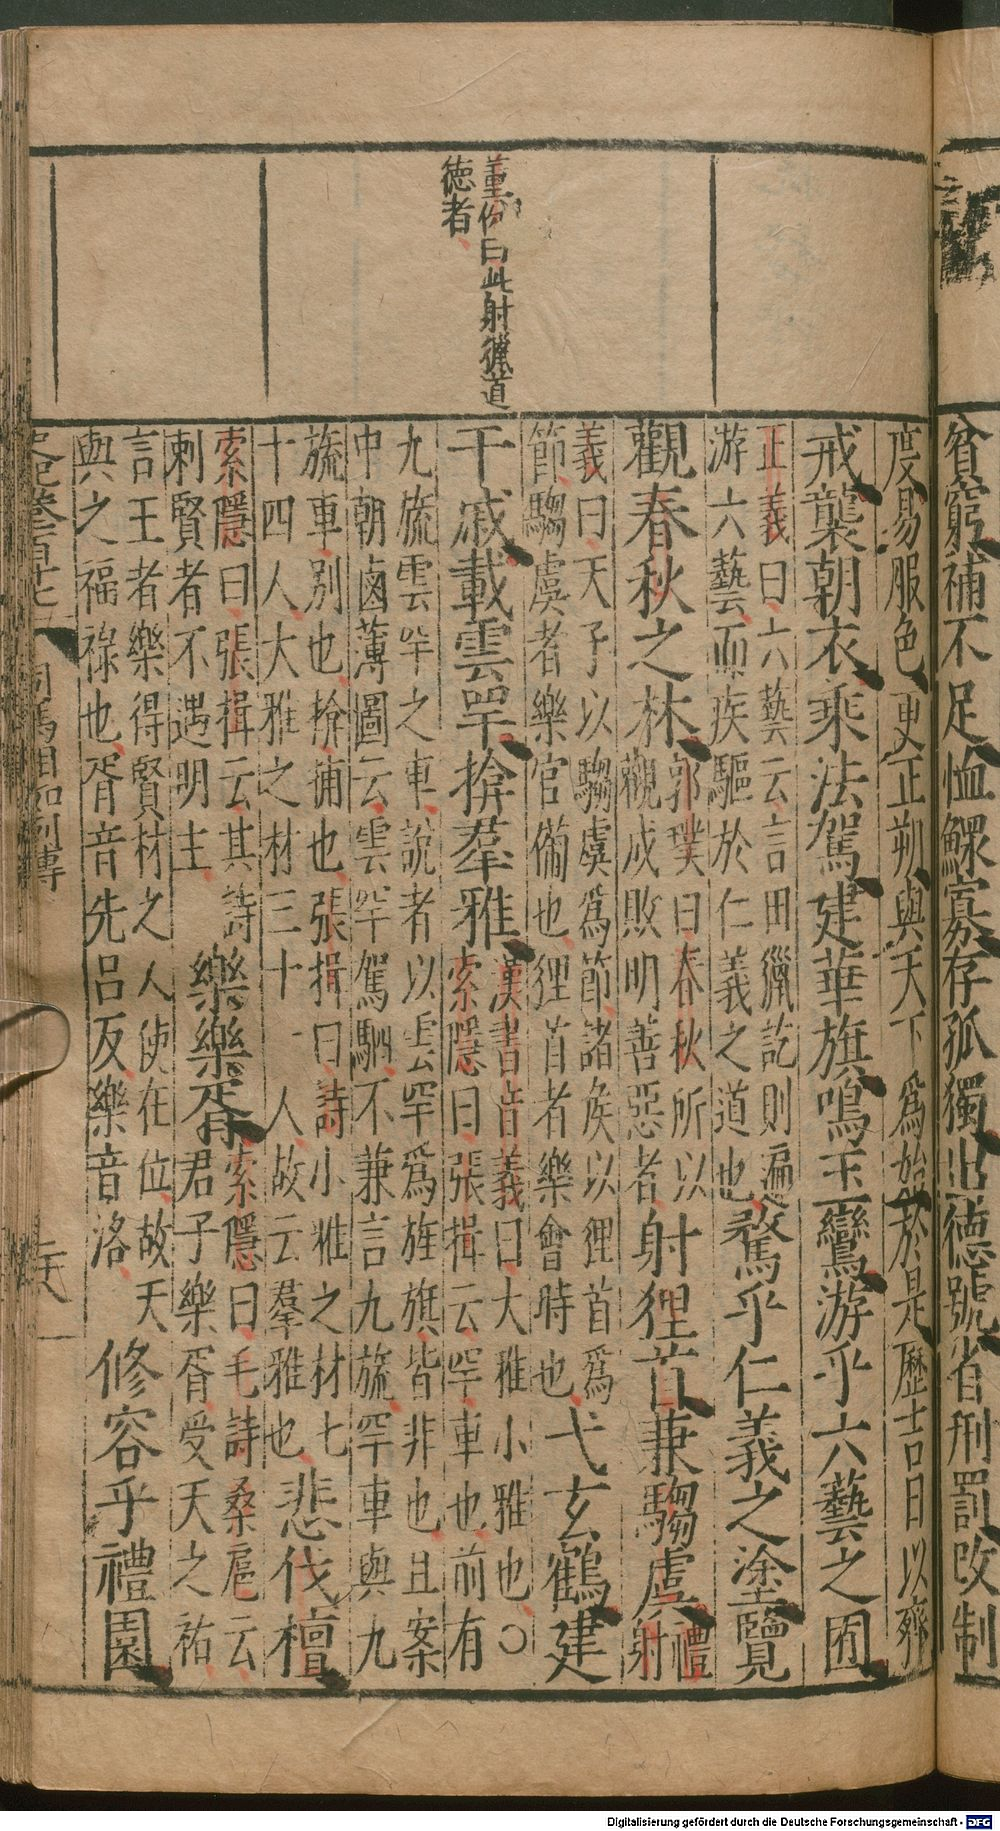 董份曰此射獵道
德者
貧窮補不足恤鰥寡存孤獨出德號省刑罰改制
度易服色更正朔與天下爲始於是歷吉日以齊
戒襲朝衣乘法駕建華旗鳴玉鸞游乎六藝之囿
正義曰六藝云言田獵訖則遍
游六藝而疾驅於仁義之道也
騖乎仁義之塗覽
觀春秋之林
郭璞曰春秋所以
觀成敗明善惡者
射狸首兼騶虞
禮射
義曰天子以騶虞爲節諸侯以狸首爲
節騶虞者樂官備也狸首者樂會時也
弋玄鶴建
干戚載雲罕揜羣雅
漢書音義曰大雅小雅也〇
索隱曰張揖云罕車也前有
九旒雲罕之車說者以雲罕爲旌旗皆非也且案
中朝鹵薄圖云雲罕駕駟不兼言九旒罕車與九
旒車別也揜捕也張揖曰詩小雅之材七
十四人大雅之材三十一人故云羣雅也
悲伐檀
索隱曰張揖云其詩
刺賢者不遇明主
樂樂胥
索隱曰毛詩桑扈云
君子樂胥受天之祐
言王者樂得賢材之人使在位故天
與之福祿也胥音先呂反樂音洛
修容乎禮園
史記卷一百十七 司馬相如列傳
Digitalisierung gefördert durch die Deutsche Forschungsgemeinschaft - DFG